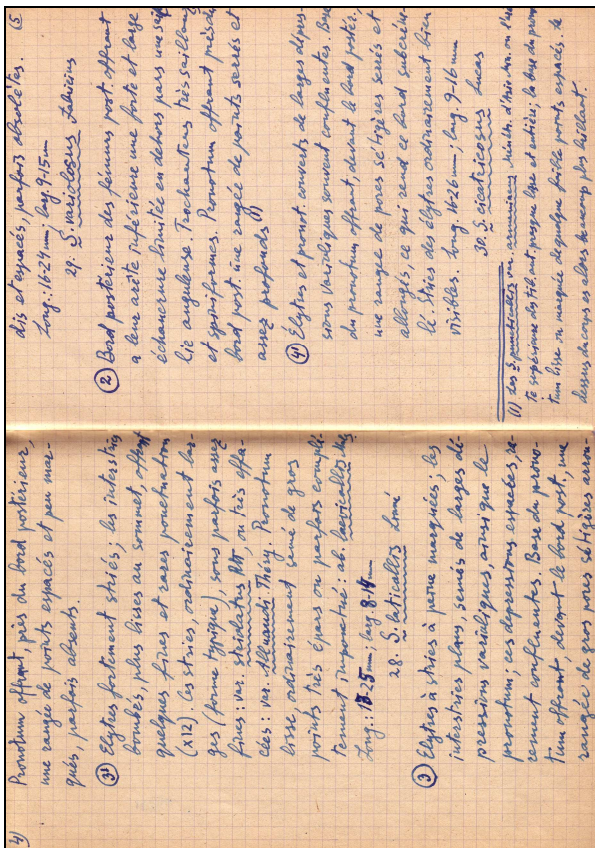 4)
Pronotum offrant, près du bord postérieur,
une rangée de points espacés et peu mar-
qués, parfois absents.
3' Elytres fortement striés; les interstries
bombés, plus lisses au sommet, offrant
quelques fines et rares ponctuation
(x12). Les stries, ordinairement lar-
ges (forme typique), sont parfois assez
fines: var. striolatus, ou très effa-
cées: var. Alluaudi Théry. Pronotum
lisse, ordinairement semé de gros
points très épars ou parfois complè-
tement imponctué: ab. laevicollis
Long.: 18-25 mm; larg 8-14 mm
28. S. laticollis Linné
3 Elytres à stries à peine marquées; les
interstries plans, semés de larges dé-
pressions varioliques, ainsi que le
pronotum; ces dépressions espacées, ra-
rement confluentes. Base du prono-
tum offrant, devant le bord post, une
rangée de gros pores sétigères arron-
(5
dis et espacés, parfois obsolètes.
Long.: 16-24 mm; larg 9-15 mm
29. S. variolosus Fabricius
2 Bord postérieur des fémurs post. offrant
à leur arête inférieure une forte et large
échancrure limitée en dehors par une sail-
lie anguleuse. Trochanters très saillants
et spiniformes. Pronotum offrant près du
bord post. une rangée de points serrés et
assez profonds (1)
4' Élytres et pronot. couverts de larges dépres-
sions varioliques souvent confluentes. Base
du pronotum offrant, devant le bord postér.,
une rangée de pores sétigères serrés et
allongés, ce qui rend ce bord subcréne-
lé. Stries des élytres ordinairement bien
visibles. Long. 16-26 mm; larg 9-16 mm
30. S. cicatricosus Lucas
(1) Les S. puncticollis var. ou l'arê-
te supérieure des tib. ant. presque lisse et entière; la base du prono-
tum lisse ou marquée de quelques faibles points espacés. Le
dessus du corps est alors beaucoup plus brillant.